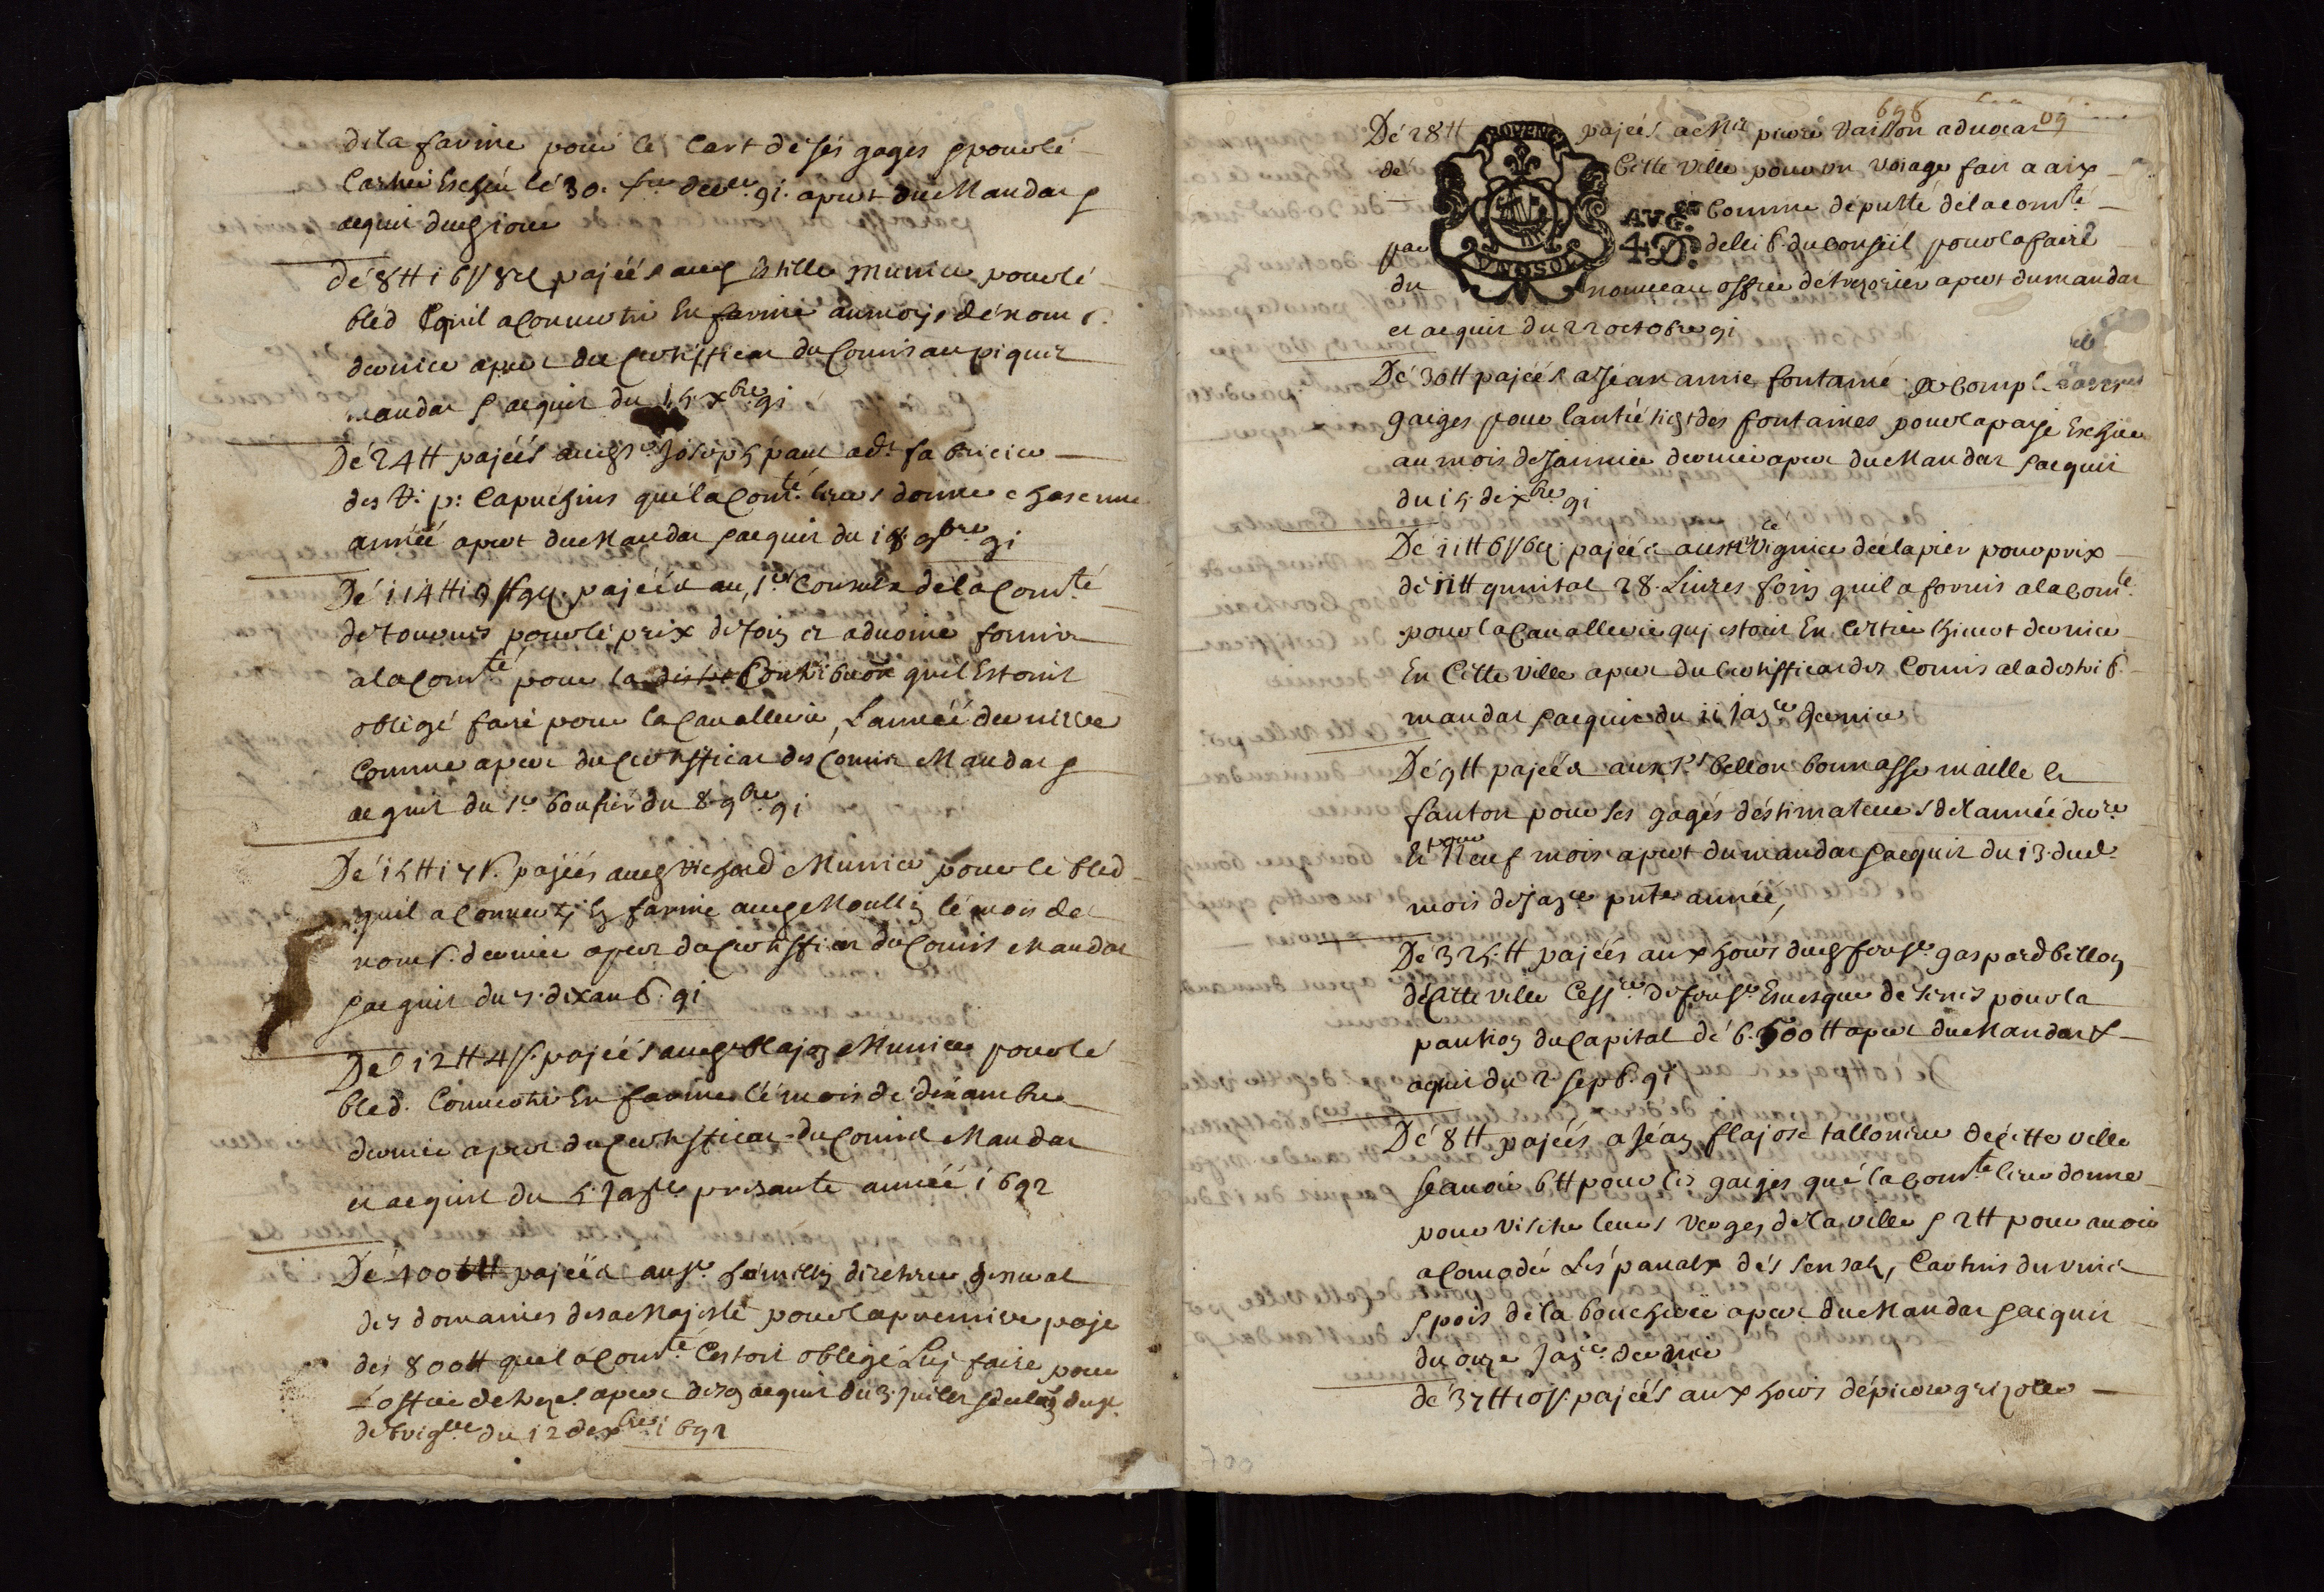 dela farine pour le Cart de ses gages p pour le
Cartier Escheu le 30. der. 91. apert du Mandat p
aquit dud jour
de 8tt 16s 8d pajéés aud Munier pour lé
bled quil a converti En farine au mois dé nov.
dernier apert du certifficat du Comis au piquet
mandat p aquit du 15 xbre 91
De 24tt pajéés aud sr Joseph paul adt fabricier
des R: p: Capuchins qué la Comté leur donne chasenne
année apert du Mandat p aquit du 18 9bre 91
De 114tt 19s 9d. pajéés au sr Consul de la Comté
de tourues pour lé prix de foin et advoine fornie
a la Comté pour la Contribuon quil Estoint
obligé faré pour la Cavallerie, L'année derniere
Comme apert du Certifficat des Comis Mandat p
aquit du sr boufier du 8 9bre 91
De 15tt 17s. pajéés aud Richard Munier pour le bled
quil a converti En farine aud Moullin lé mois de
nov. dernier apert du certifficat du Comis Mandat
p aquit du 7. dixamb. 91
De 12tt 4s. pajéés aud blajon Munier pour lé
bled. Converti En farine lé mois dé dexambre
dernier apert du Certifficat du Comis Mandat
et aquit du 5 Janer prezante année 1692
De 400tt pajéés au sr directeur general
des domaines de sa Majesté pour la premiere paje
des 800tt quel a Comté Estoit obligé Luj faire pour
Loffice de apert de son aquit du 3. juilet du sr.
de du 12 dexbre 1691
698
De 28tt pajéés a Me pierre Vaison advocat
dé Cette Ville pour un voiage fait a aix
PROVENCE
AVG.on
4 D.
Comme députté dé la comté
par delib. du conseil pour la faire
du nouveau office dé trezorier apert du mandat
et aquit du 22 octobre 91
De 30tt pajéés a Jean anric fontanié a Compte dasses
gaiges pour lantretient des fontaines pour la paije Escheue
au mois de Janvier dernier apert du Mandat p aquit
du 15. dixbre 91
De 11tt 6s 6d. pajéés au sr vignier de lapier pour prix
de 11tt quintal 28. Livres foin quil a fornis a la Comté
pour la Cavallerie quj estoit En Cartier hivert dernier
En Cette Ville apert du Certifficat des Comis a la distrib.
mandat p aquit du 11 Janer dernier
De 9tt pajéés aux srs bellon bonnasse maille et
fauton pour ses gages déstimateurs de l'année derre
Et pour Neuf mois apert du mandat p aquit du 13. dud.
mois de Janer pnte année,
De 325.tt pajéés aux hoirs dud feu sr gaspard bellon
dé Cette Ville Cessre de feu sr Evesque de senes pour la
pantion du Capital dé 6.500tt apert du Mandat &
aquit du 2 sepb. 91
Dé 8tt pajéés a Jéan flajose tallonier dé Cette ville
Scavoir 6tt pour les gaiges qué la Comté lieu donne
pour visiter leurs verges de la ville p 2tt pour avoir
acomodé Lés panals dés Sensals, Cantins du vin
p pois dé la boucherie apert du Mandat p aquit
du onze Janer dernier
dé 37tt 10s. pajéés aux hoirs dé pierre grizolle